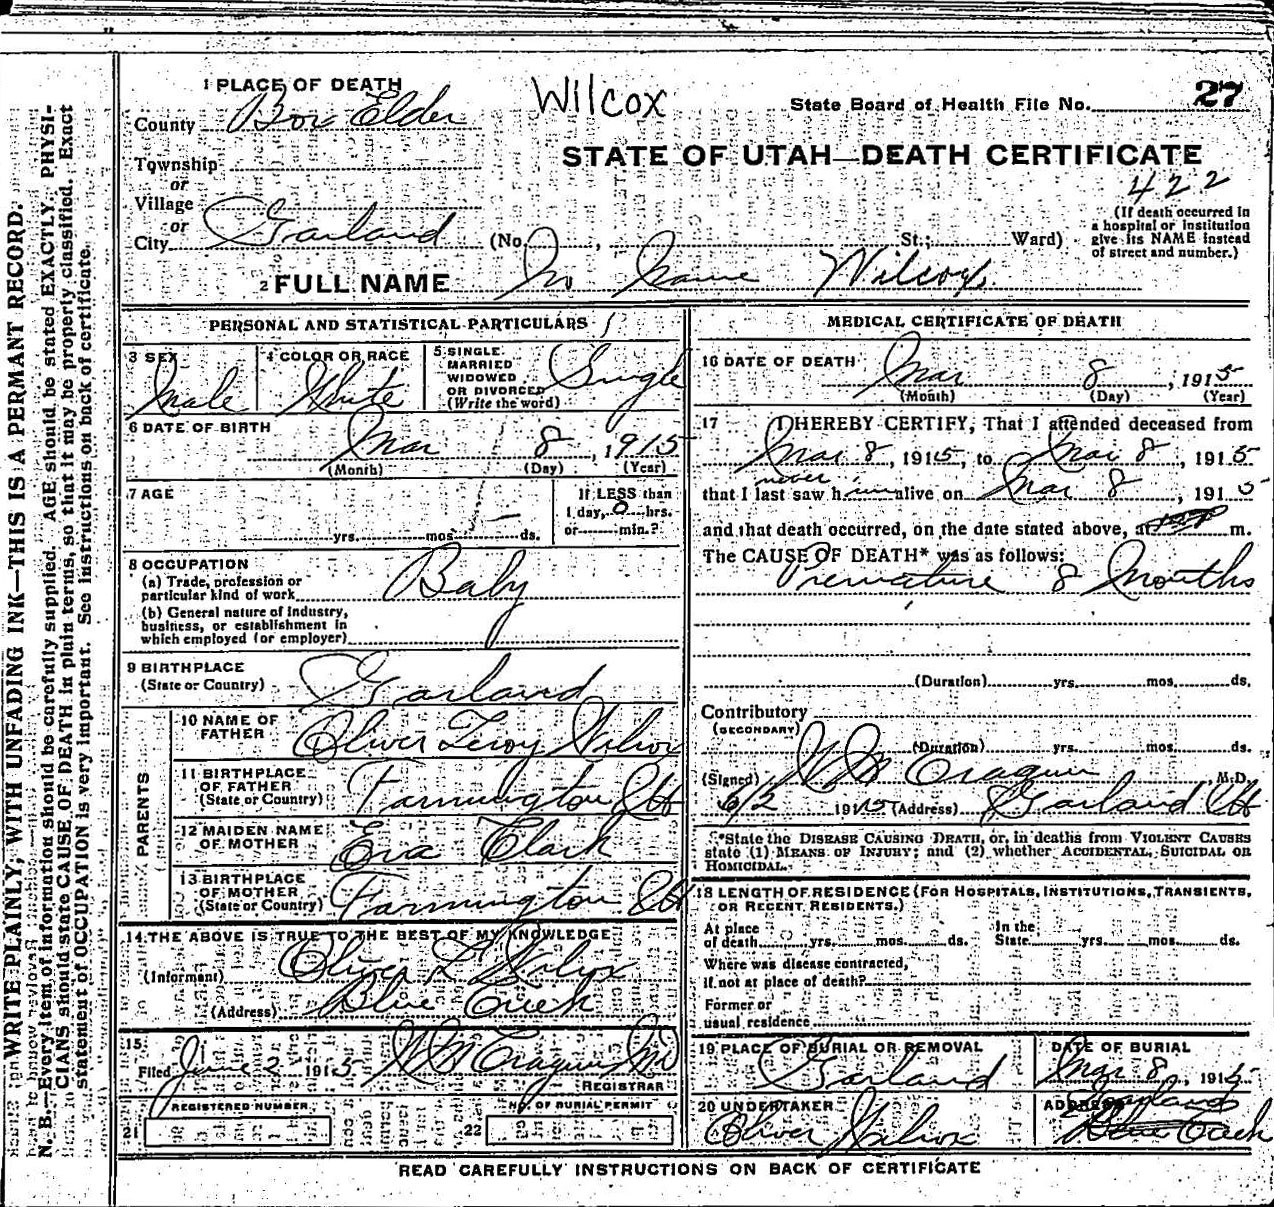 WRITE PLAINLY, WITH UNFADING INK—THIS IS A PERMANT RECORD.
N. B.—Every item of information should be carefully supplied. AGE should be stated EXACTLY. PHYSI-
CIANS should state CAUSE OF DEATH in plain terms, so that it may be properly classified. Exact
statement of OCCUPATION is very important. See instructions on back of certificate.
1 PLACE OF DEATH
Wilcox
State Board of Health File No. 27
County Box Elder
STATE OF UTAH—DEATH CERTIFICATE
Township
or
Village
or
City Garland
422
(No. , St.; Ward)
(If death occurred in
a hospital or institution
give its NAME instead
of street and number.)
2 FULL NAME No Name Wilcox
PERSONAL AND STATISTICAL PARTICULARS
3 SEX
Male
4 COLOR OR RACE
White
5 SINGLE
MARRIED
WIDOWED
OR DIVORCED
(Write the word)
Single
6 DATE OF BIRTH
Mar 8, 1915
(Month) (Day) (Year)
7 AGE
yrs. mos. ds.
If LESS than
1 day, 0 hrs.
or min.?
8 OCCUPATION
(a) Trade, profession or
particular kind of work Baby
(b) General nature of industry,
business, or establishment in
which employed (or employer)
9 BIRTHPLACE
(State or Country) Garland
PARENTS
10 NAME OF
FATHER Oliver Leroy Wilcox
11 BIRTHPLACE
OF FATHER
(State or Country) Farmington Ut
12 MAIDEN NAME
OF MOTHER Eva Clark
13 BIRTHPLACE
OF MOTHER
(State or Country) Farmington Ut
14 THE ABOVE IS TRUE TO THE BEST OF MY KNOWLEDGE
(Informant) Oliver L Wilcox
(Address) Blue Creek
15
Filed June 2 1915 WM Cragun MD
REGISTRAR
REGISTERED NUMBER
21
NO. OF BURIAL PERMIT
22
MEDICAL CERTIFICATE OF DEATH
16 DATE OF DEATH
Mar 8, 1915
(Month) (Day) (Year)
17 I HEREBY CERTIFY, That I attended deceased from
Mar 8, 1915, to Mar 8, 1915
never
that I last saw h alive on Mar 8, 1915
and that death occurred, on the date stated above, at m.
The CAUSE OF DEATH* was as follows:
Premature 8 Months
(Duration) yrs. mos. ds.
Contributory
(SECONDARY)
(Duration) yrs. mos. ds.
(Signed) WM Cragun, M.D.
6/2 1915 (Address) Garland Ut
*State the DISEASE CAUSING DEATH, or, in deaths from VIOLENT CAUSES
state (1) MEANS OF INJURY; and (2) whether ACCIDENTAL, SUICIDAL OR
HOMICIDAL.
18 LENGTH OF RESIDENCE (FOR HOSPITALS, INSTITUTIONS, TRANSIENTS,
OR RECENT RESIDENTS.)
At place
of death yrs. mos. ds.
In the
State yrs. mos. ds.
Where was disease contracted,
if not at place of death?
Former or
usual residence
19 PLACE OF BURIAL OR REMOVAL
Garland
DATE OF BURIAL
Mar 8, 1915
20 UNDERTAKER
Oliver Wilcox
ADDRESS
Garland
Blue Creek
READ CAREFULLY INSTRUCTIONS ON BACK OF CERTIFICATE